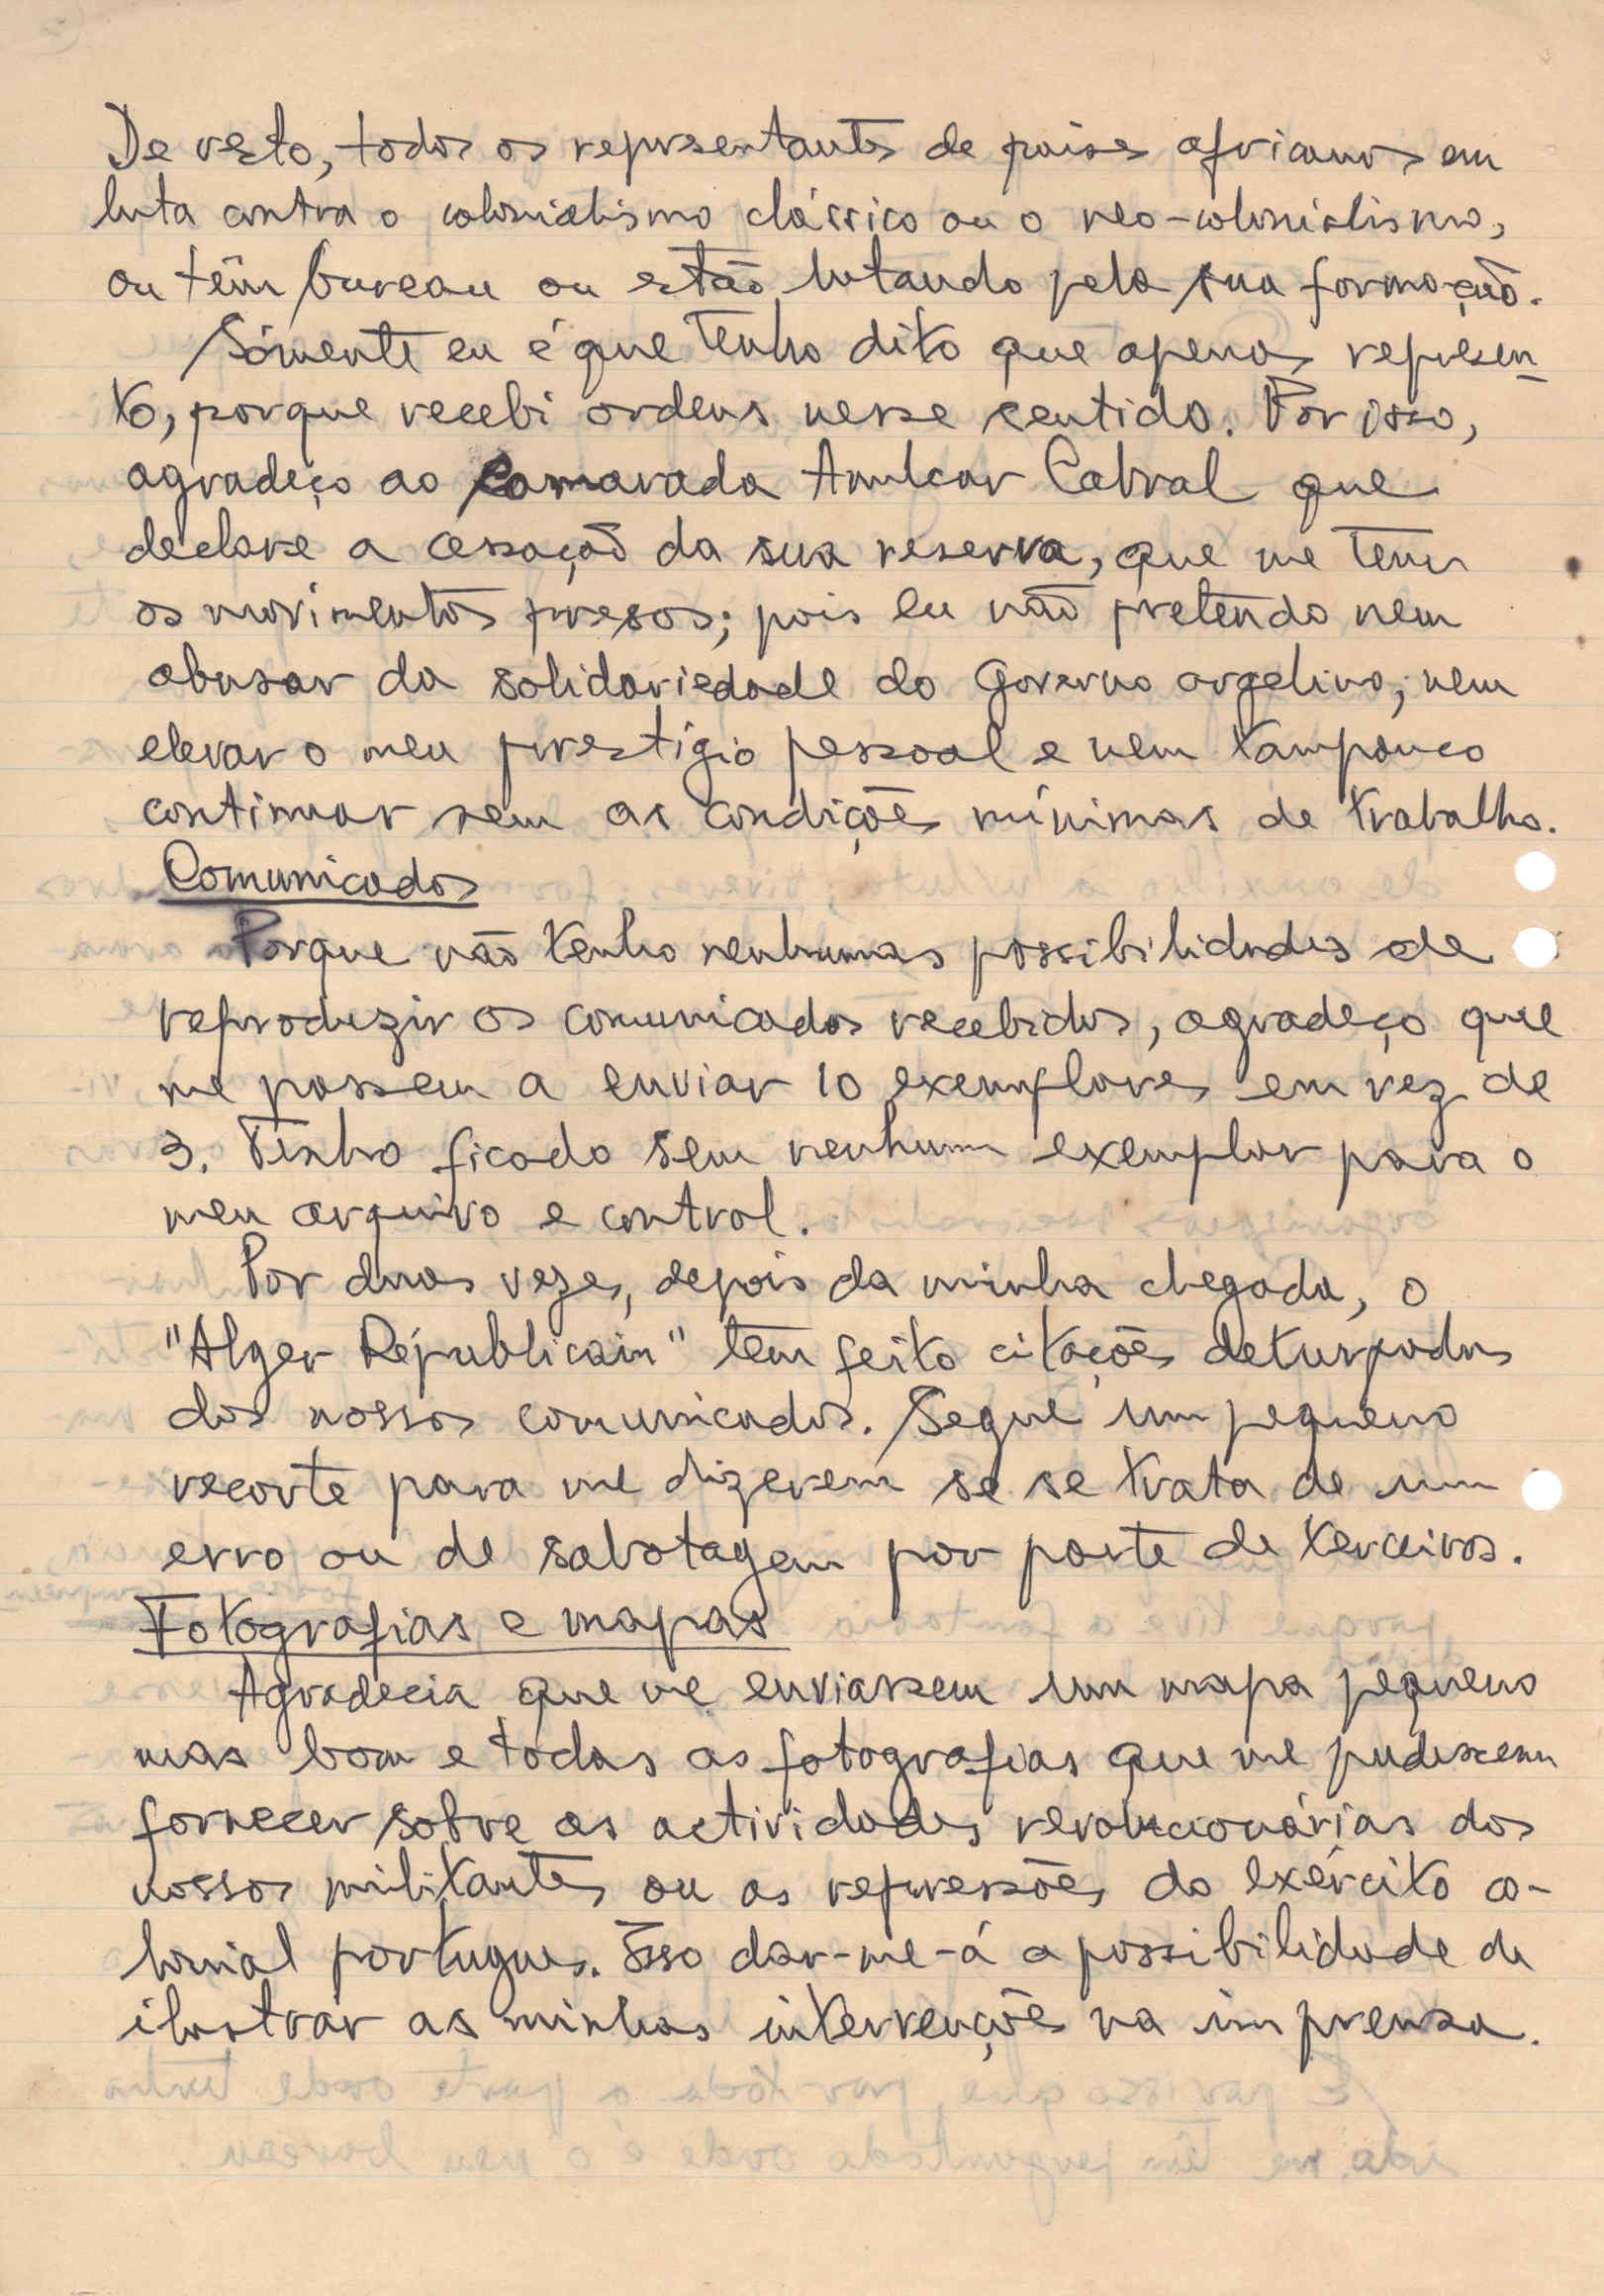 De resto, todos os representantes de paises africanos em
luta contra o colonialismo clássico ou o neo-colonialismo,
ou têm bureau ou estão lutando pela sua formação.
Sómente eu é que tenho dito que apenas represen-
to, porque recebi ordens nesse sentido. Por isso,
agradeço ao Camarada Amilcar Cabral que
declare a cessação da sua reserva, que me tem
os movimentos presos; pois eu não pretendo nem
abusar da solidariedade do Governo argelino, nem
elevar o meu prestígio pessoal e nem tampouco
continuar sem as condições mínimas de trabalho.
Comunicados
Porque não tenho nenhumas possibilidades de
reproduzir os comunicados recebidos, agradeço que
me passem a enviar 10 exemplares em vez de
3. Tenho ficado sem nenhum exemplar para o
meu arquivo e control.
Por duas vezes, depois da minha chegada, o
"Alger Républicain" tem feito citações deturpadas
dos nossos comunicados. Segue um pequeno
recorte para me dizerem se se trata de um
erro ou de sabotagem por parte de terceiros.
Fotografias e mapas
Agradecia que me enviassem um mapa pequeno
mas bom e todas as fotografias que me pudessem
fornecer sobre as actividades revolucionárias dos
nossos militantes ou as repressões do exército co-
lonial portugues. Isso dar-me-á a possibilidade de
ilustrar as minhas intervenções na imprensa.